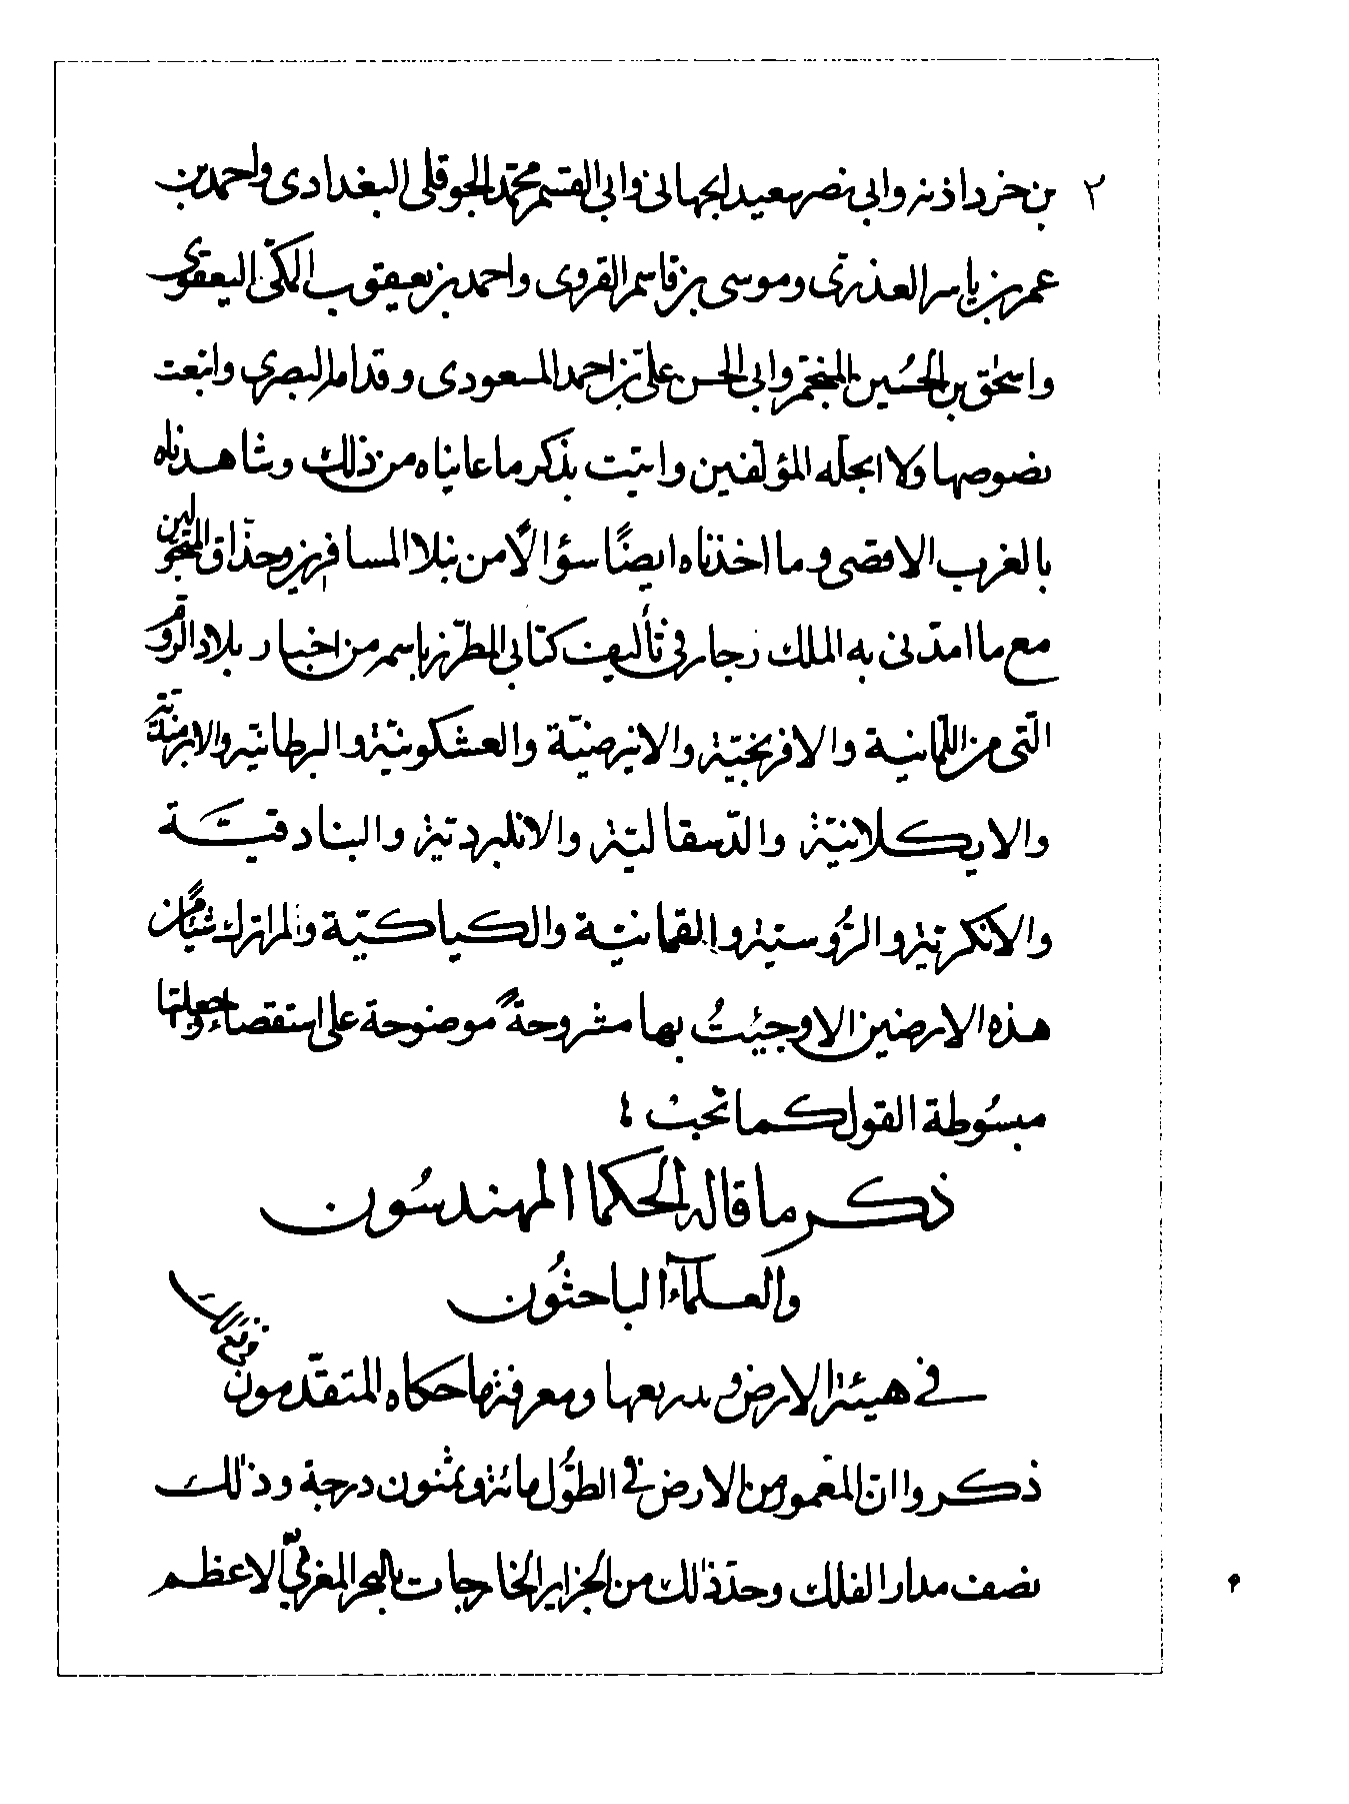 ٢ بن خرداذبه وابي نصر سعيد الجهاني وابي القسم محمد الحوقلى البغدادى واحمد بن
عمر بن ياسر العذرى وموسى بن قاسم القروى واحمد بن يعقوب المكّى اليعقوبى
واسحٰق بن الحُسين المنجّم وابى الحسن علىّ بن احمد المسعودى وقدامه البصرى واتبعت
نصوصها ولا المؤلّفين واتيت بذكر ما عايناه من ذلك وشاهدناه
بالغرب الاقصى وما اخذناه ايضًا سؤالاً من نبلا المسافرين وحذّاق المتجولين
مع ما امدّنى به الملك رجار فى تأليف كتابى المطرّز باسمه من اخبار بلاد الروم
الّتى من اللمانية والافرنجيّة والعشكونيّة والبرطانيّة
والايكلانيّة والدّسقاليّة والانلبرديّة والبنادقيّة
والانكريّة والرُّوسيّة والقمانيّة شيئًا من
هذه الارضين الا وجيئتُ بها مشروحةً موضوحة على استقصاء وجعلتها
مبسُوطة القول كما تحب
ذكر ما قاله الحكما المهندسُون
والعلمآء الباحثُون
فى هيئة الارض ومعرفتها حكاه المتقدّمون
ذكروا انّ المعمور من الارض فى الطُّول مائة وثمنون درجة وذٰلك
نصف مدار الفلك وحدّ ذٰلك من الجزاير الخارجات بالبحر المغربىّ الاعظم
٢